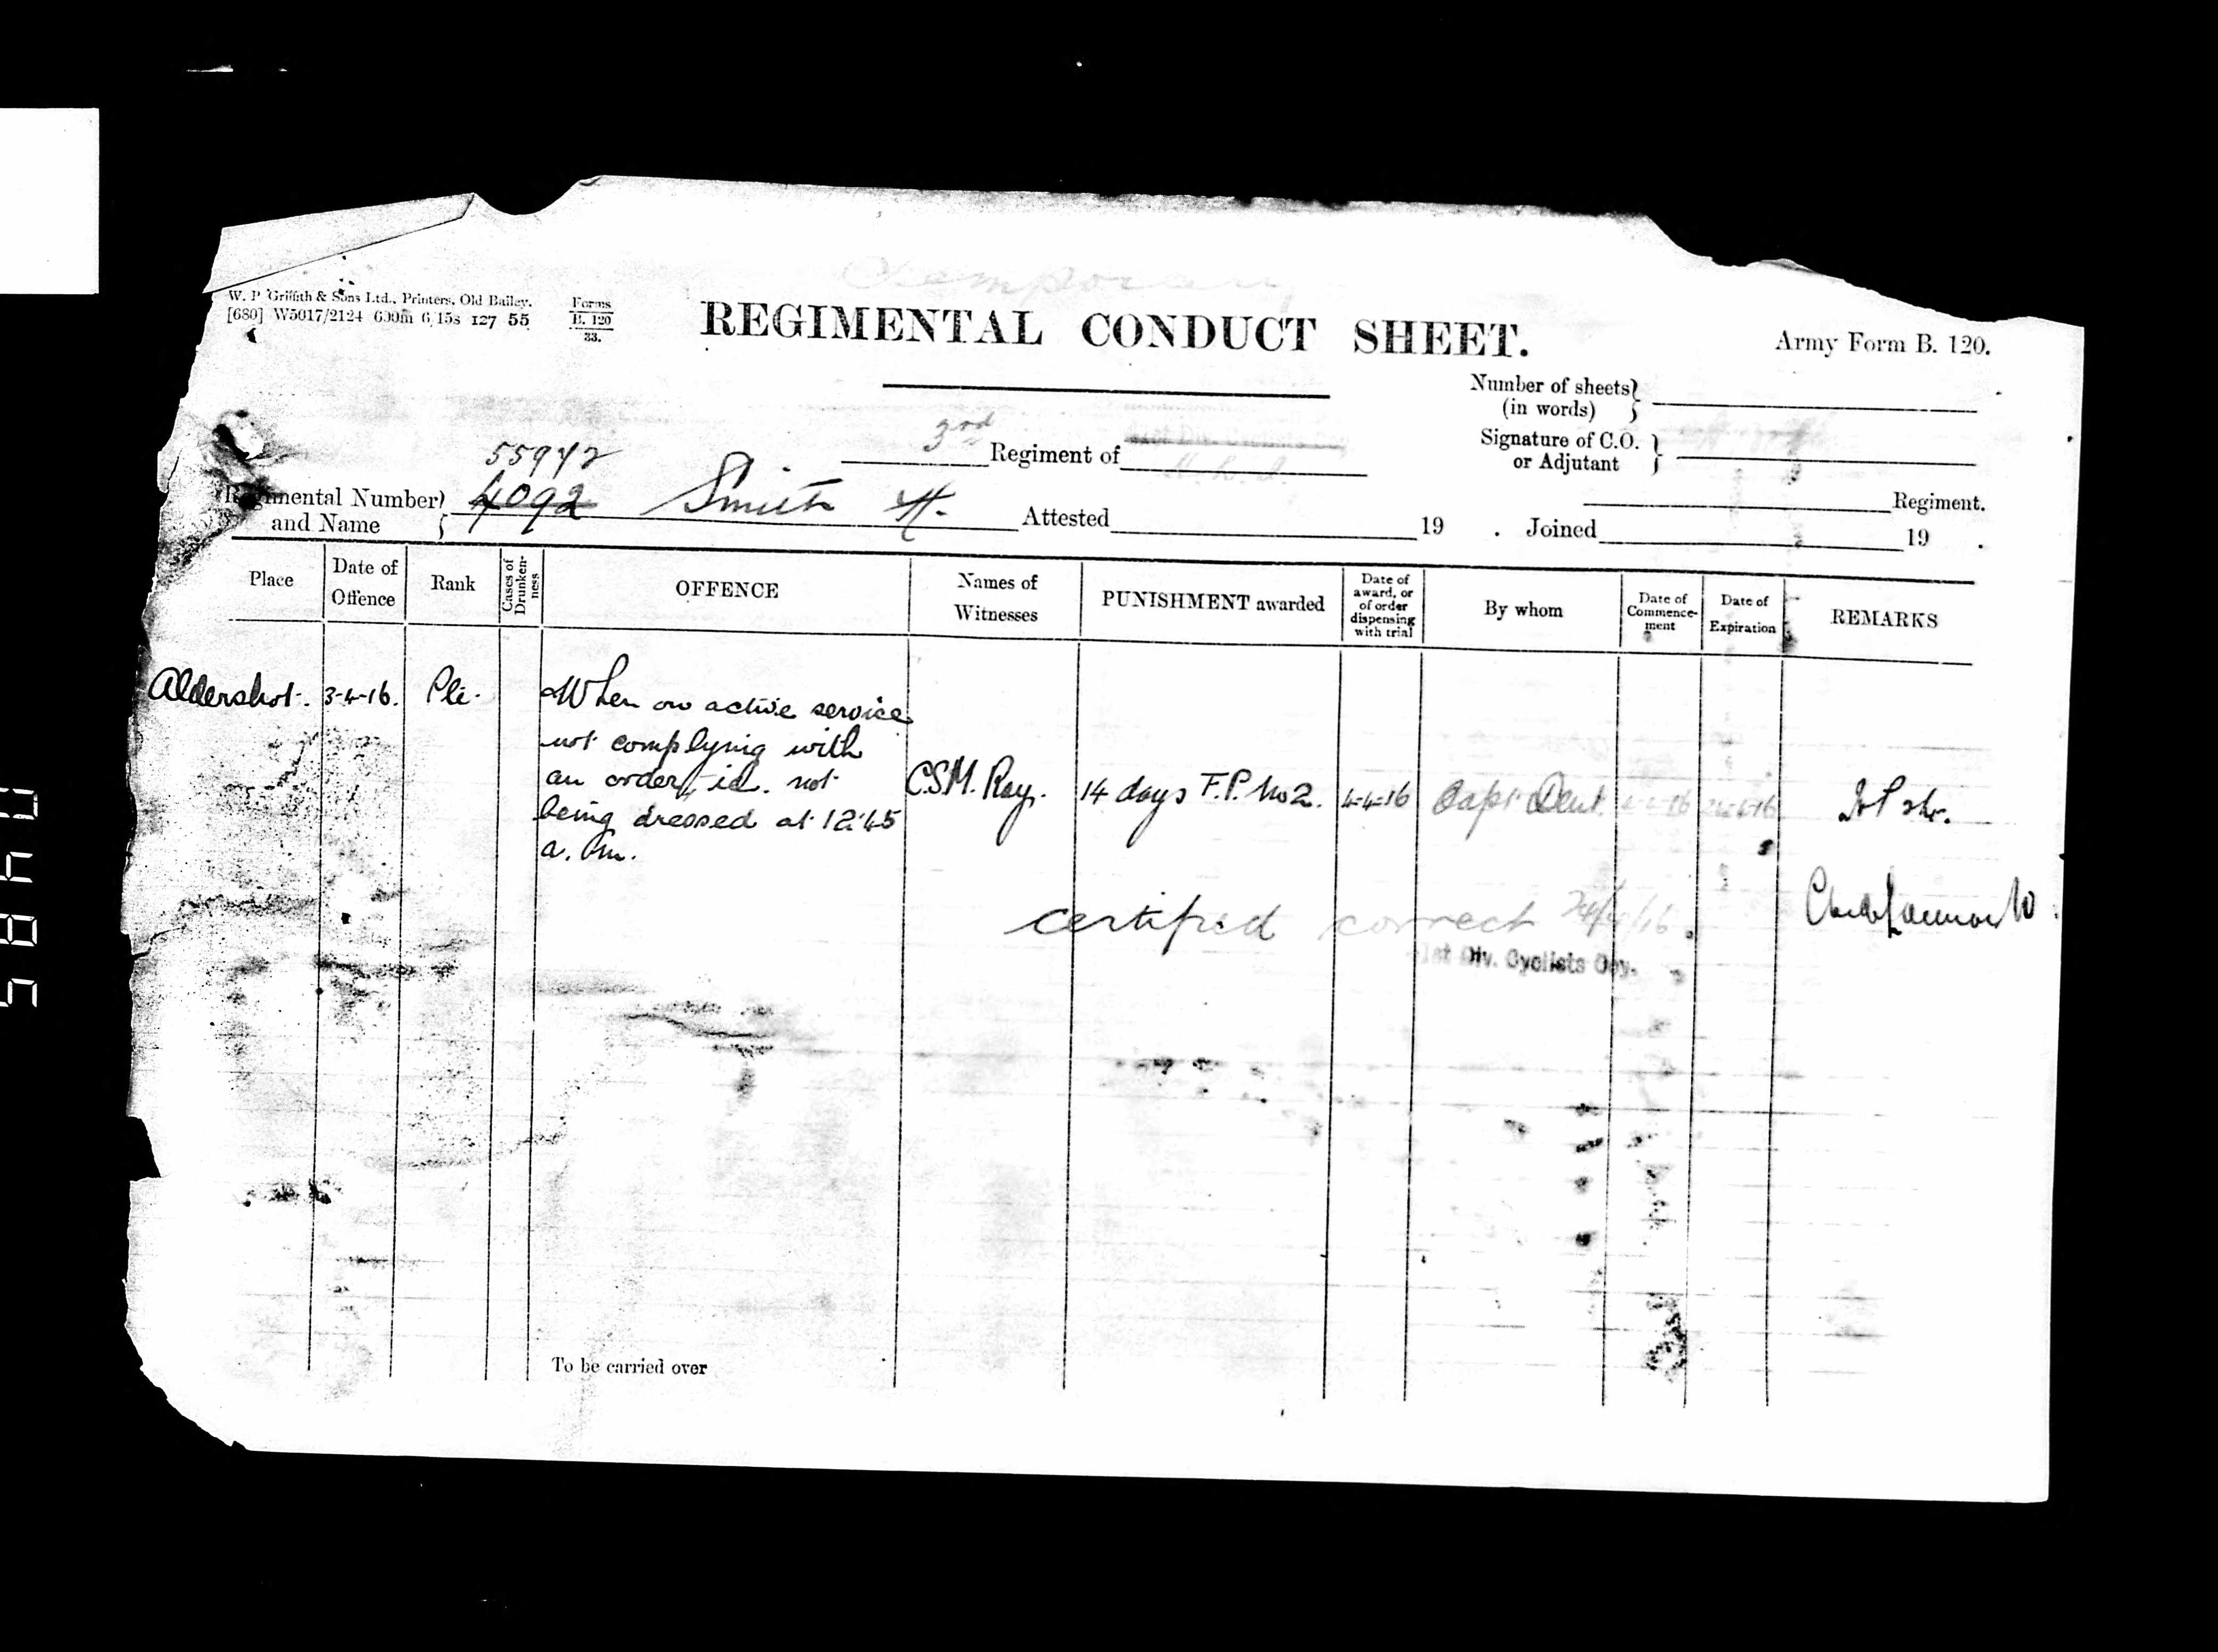 Temporary
W. P. Griffith & Sons Ltd., Printers, Old Bailey.
[680] W5017/2124 600m 6/15s 127 55
Forms
B. 120
33.
REGIMENTAL CONDUCT SHEET.
Army Form B. 120.
Number of sheets
(in words)
3rd Regiment of H. L. I.
Signature of C.O.
or Adjutant
55942
Regimental Number
and Name
4092 Smith H.
Attested 19 . Joined 19 .
Regiment.
Place
Date of Offence
Rank
Cases of Drunken-ness
OFFENCE
Names of Witnesses
PUNISHMENT awarded
Date of award, or of order dispensing with trial
By whom
Date of Commence-ment
Date of Expiration
REMARKS
Aldershot. 3-4-16. Pte.
When on active service
not complying with
an order, ie. not
being dressed at 12.45
a. Pm.
C.S.M. Ray. 14 days F.P. No 2. 4-4-16 Capt Dent.
certified correct
1st Div. Cyclists Coy.
To be carried over
0485